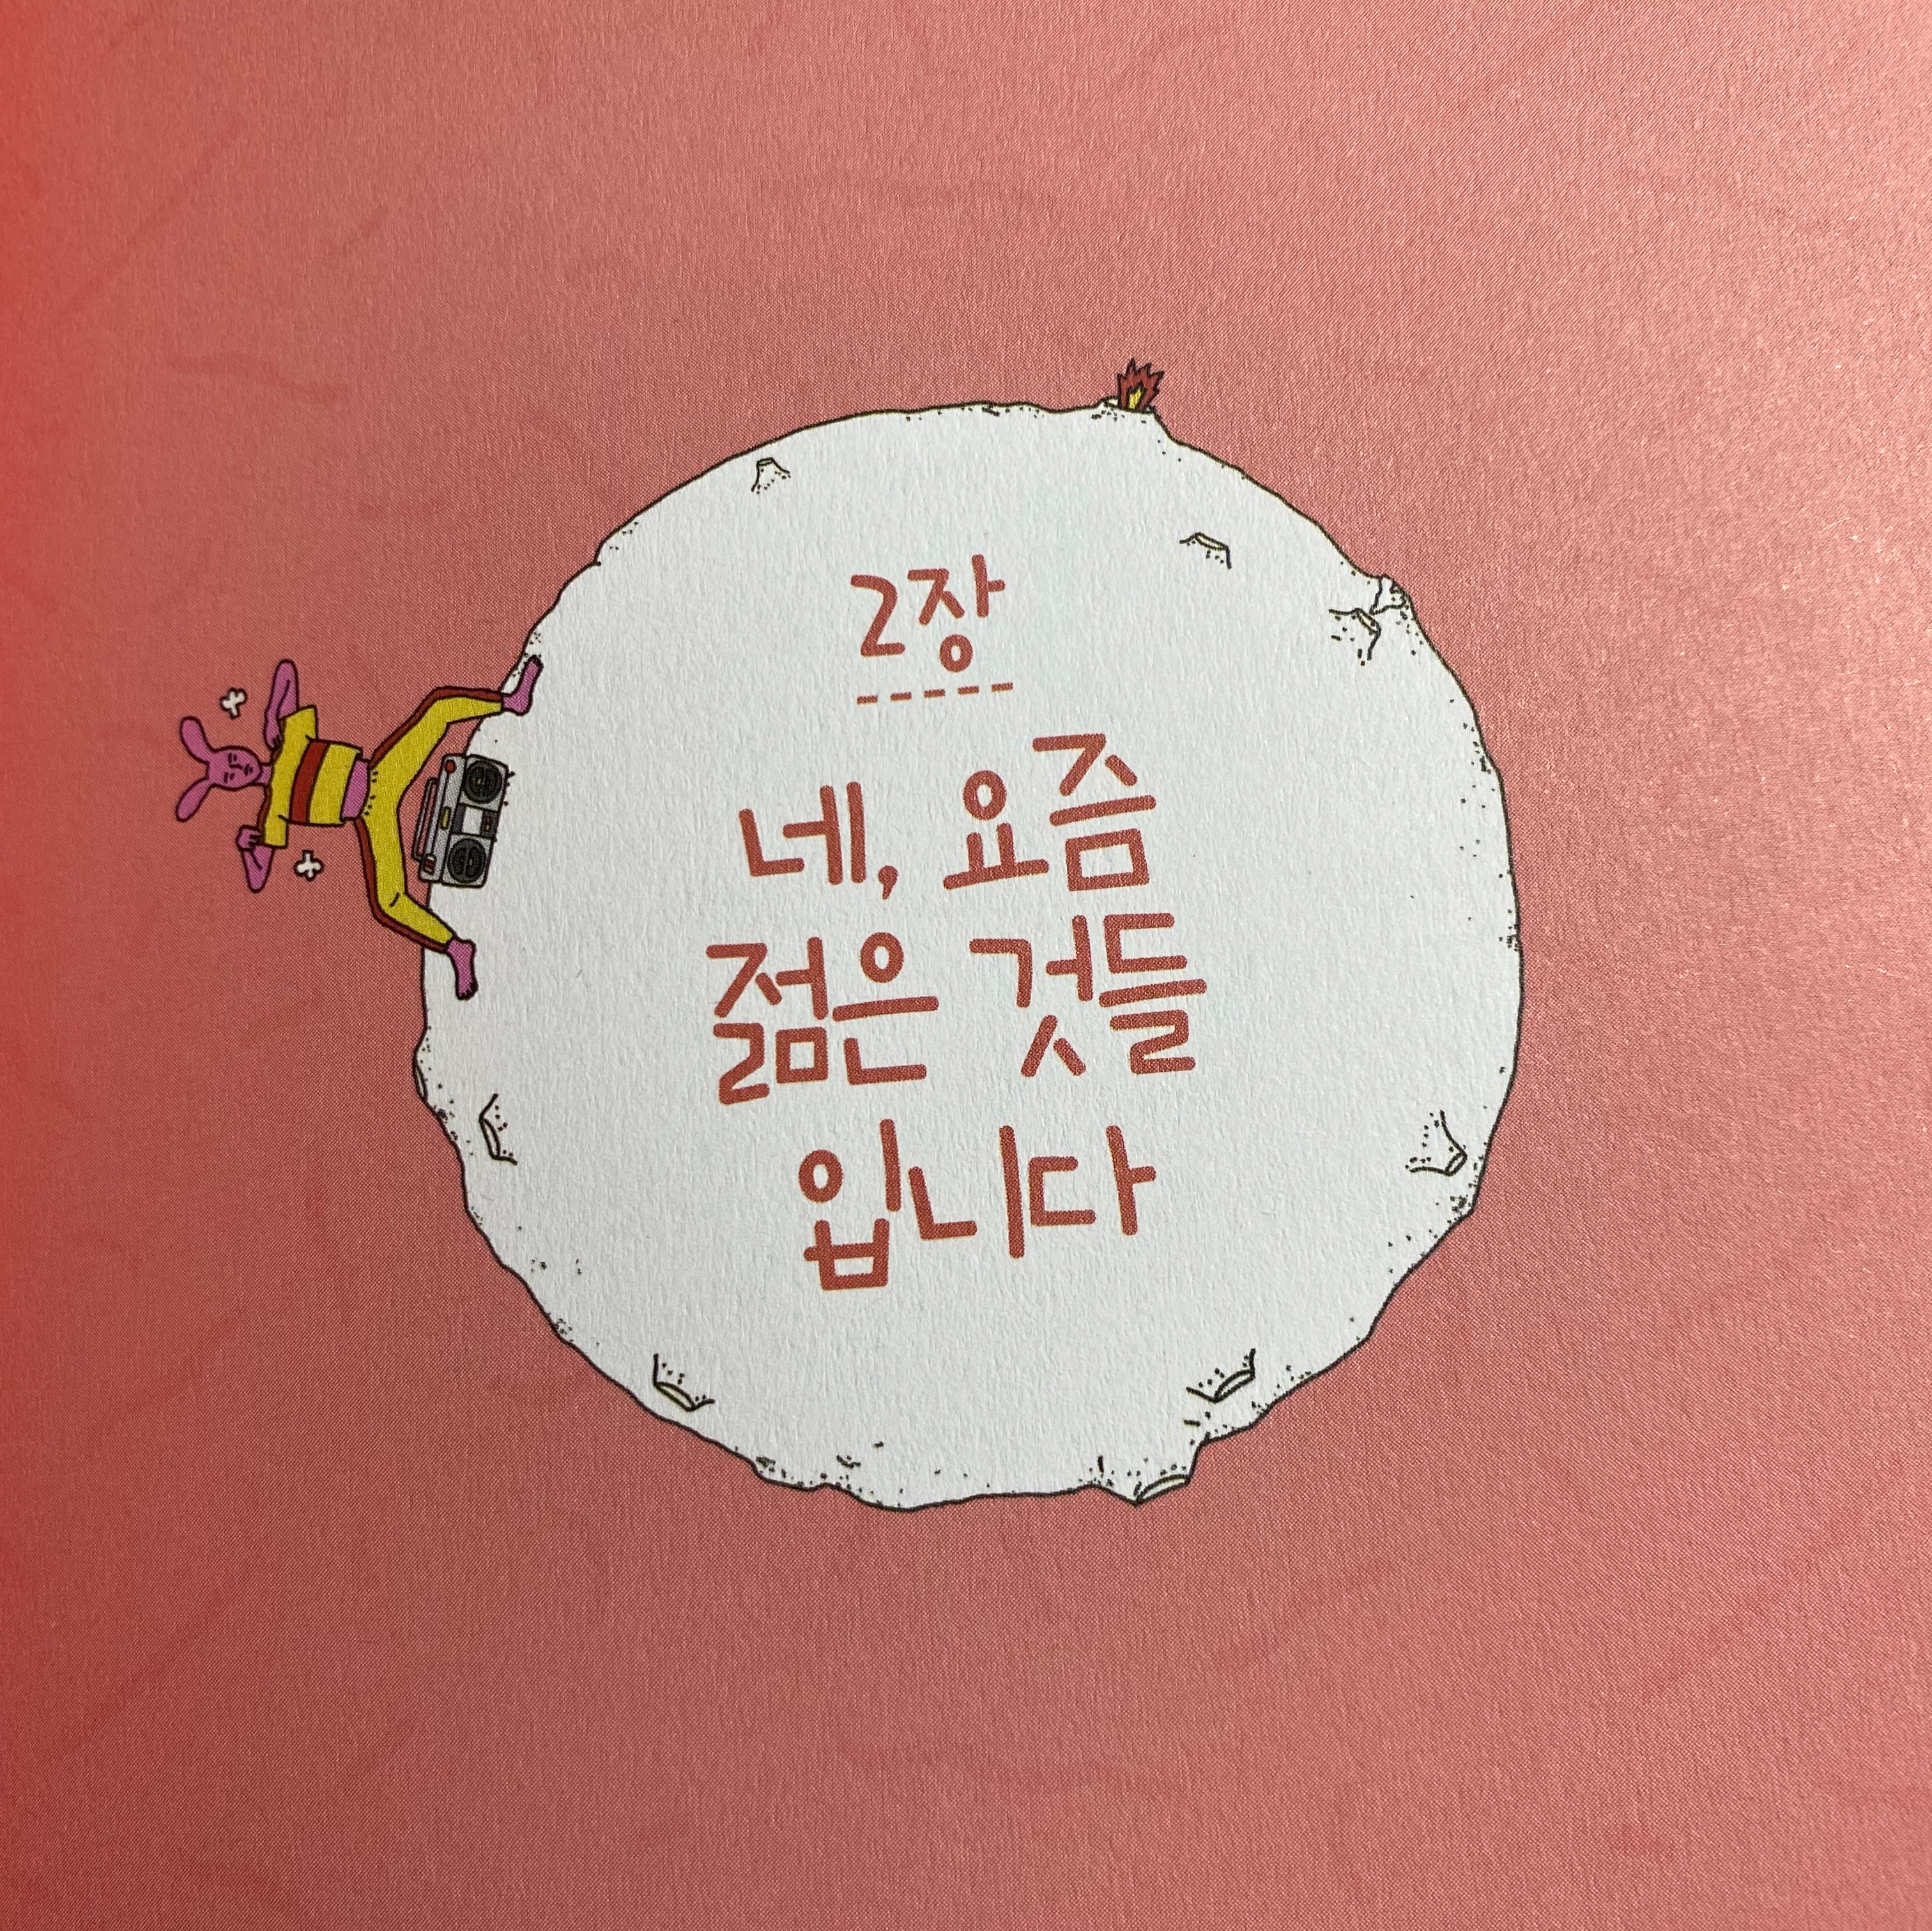 2장
네, 요즘
젊은 것들
입니다